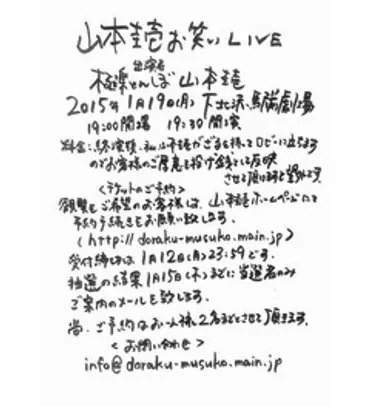 山本圭壱お笑いLIVE
出演者
極楽とんぼ 山本圭一
2015年1月19日(月) 下北沢 駅前劇場
19:00開場 19:30開演
料金:終演後、私山本圭一がざるを持ってロビーに立ちます
のでお客様のご厚意を投げ銭として反映
させて頂ければと望みです。
<チケットのご予約>
観覧をご希望のお客様は、山本圭一ホームページにて
予約手続きをお願い致します。
(http://doraku-musuko.main.jp)
受付締切は1月12日(月)23:59です。
抽選の結果1月15日(木)までに当選者のみ
ご案内のメールを致します。
尚、ご予約はお一人様2名までとさせて頂きます。
<お問い合わせ>
info@doraku-musuko.main.jp